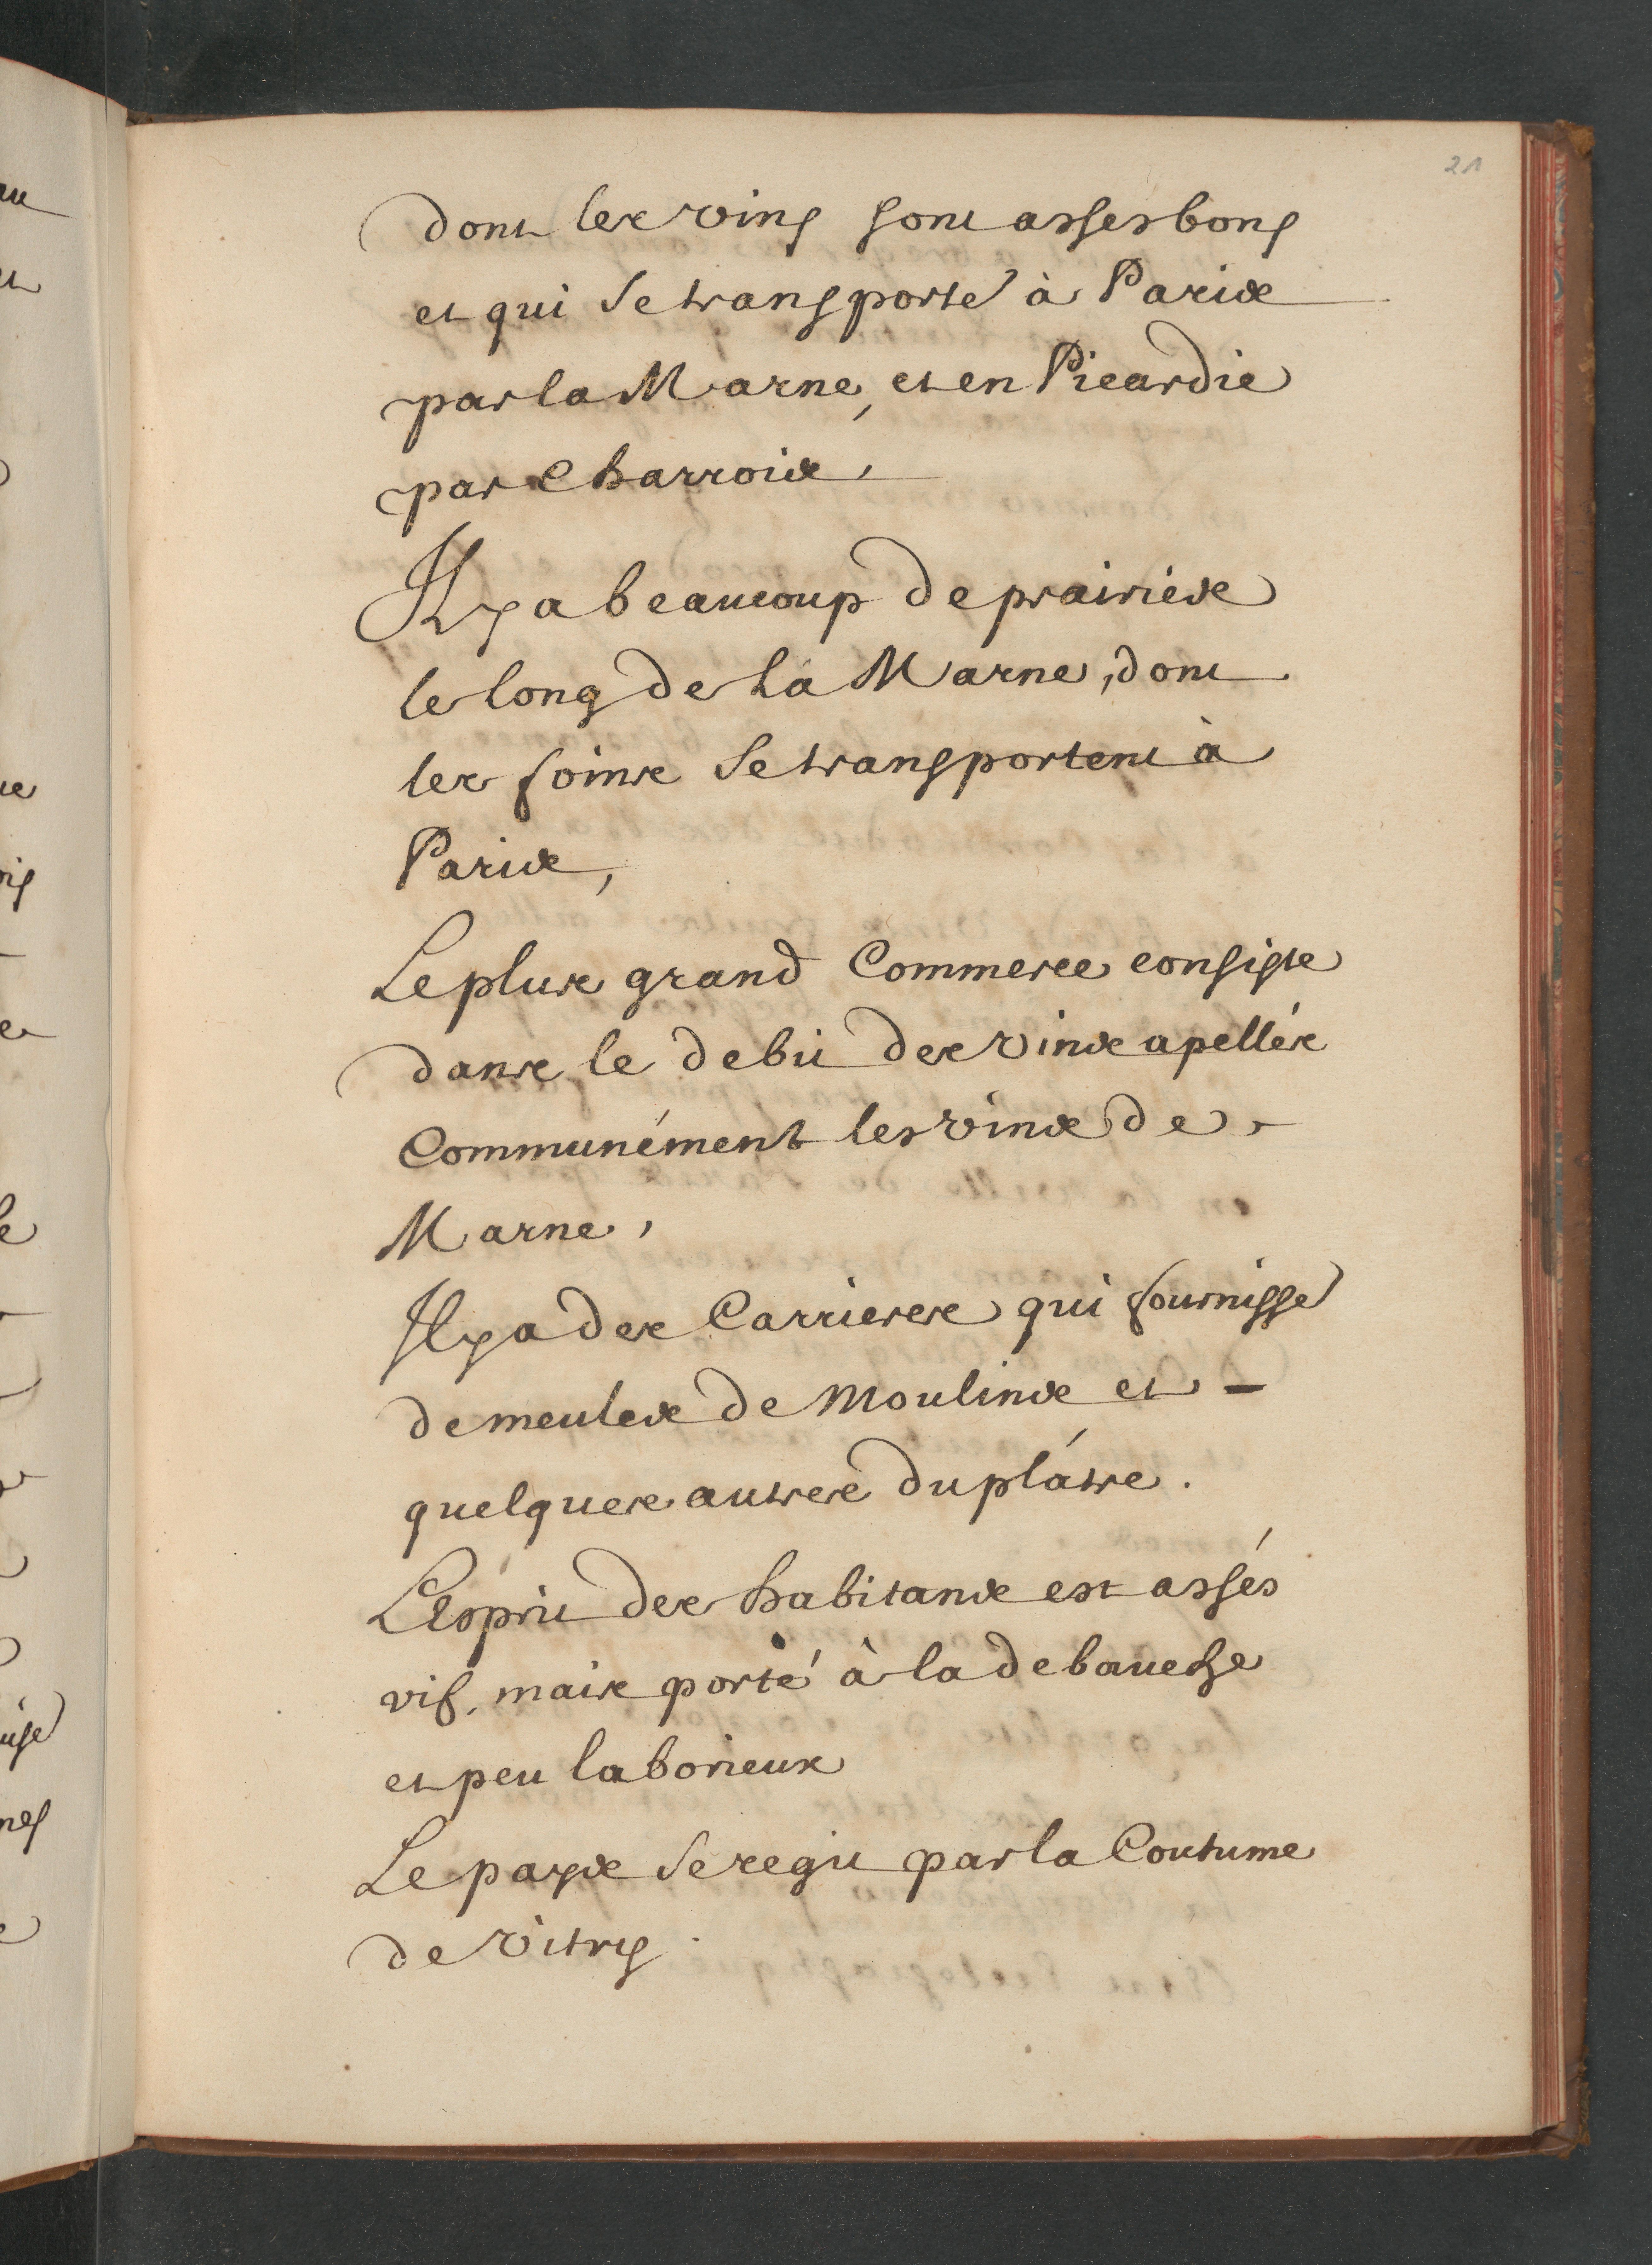 21
dont les vins sont asses bons
et qui se transporte à Paris
par la Marne, et en Picardie
par Charrois,
Il y a beaucoup de prairiés
le long de la Marne, dont
les foins se transportent à
Paris,
Le plus grand Commerce consiste
dans le debit des vins apellés
Communément les vins de
Marne,
Il y a des Carrieres qui fournisse
de meules de Moulins et -
quelques autres du plátre.
L'Esprit des habitans est assés
vif, mais porté à la debauche
et peu laborieux
Le pays se regit par la Coutume
de Vitry.